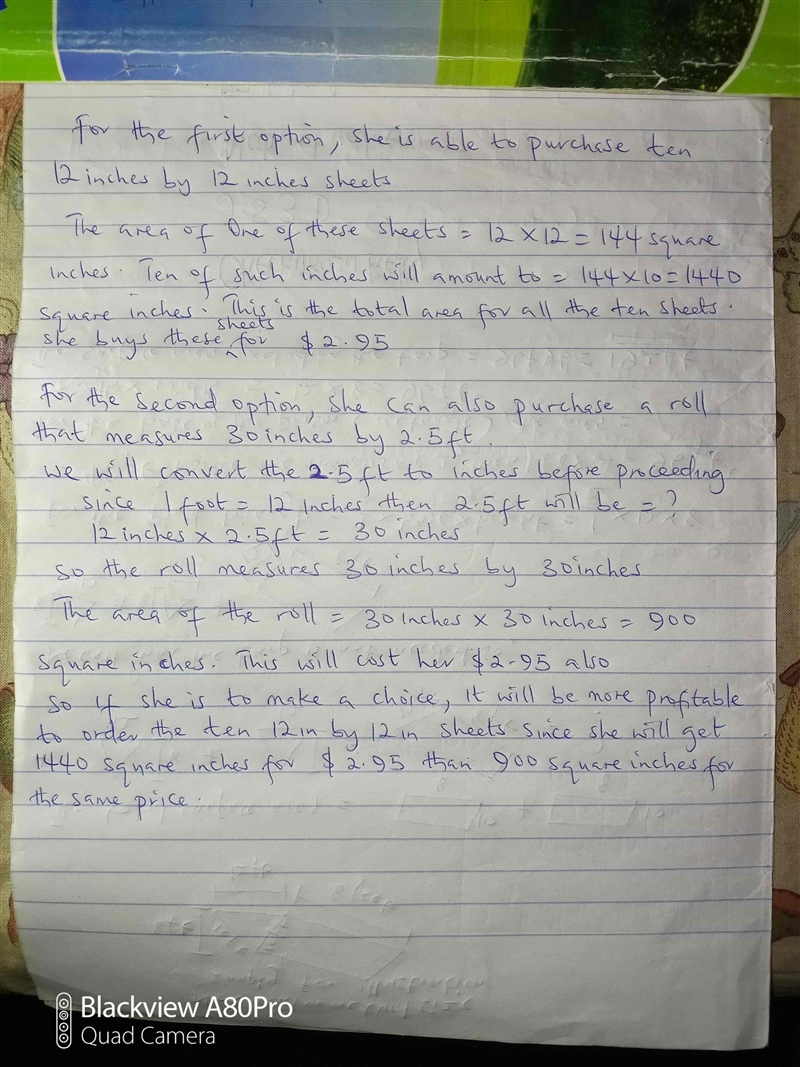 For the first option, she is able to purchase ten
12 inches by 12 inches sheets
The area of One of these sheets = 12 × 12 = 144 square
inches. Ten of such inches will amount to = 144×10=1440
square inches. This is the total area for all the ten sheets.
she buys these sheets for $2.95
For the second option, she can also purchase a roll
that measures 30 inches by 2.5ft.
We will convert the 2.5ft to inches before proceeding
since 1 foot = 12 inches then 2.5ft will be = ?
12 inches × 2.5ft = 30 inches
So the roll measures 30 inches by 30inches
The area of the roll = 30 inches × 30 inches = 900
square inches. This will cost her $2.95 also
So if she is to make a choice, it will be more profitable
to order the ten 12in by 12 in sheets since she will get
1440 square inches for $2.95 than 900 square inches for
the same price.
Blackview A80Pro
Quad Camera